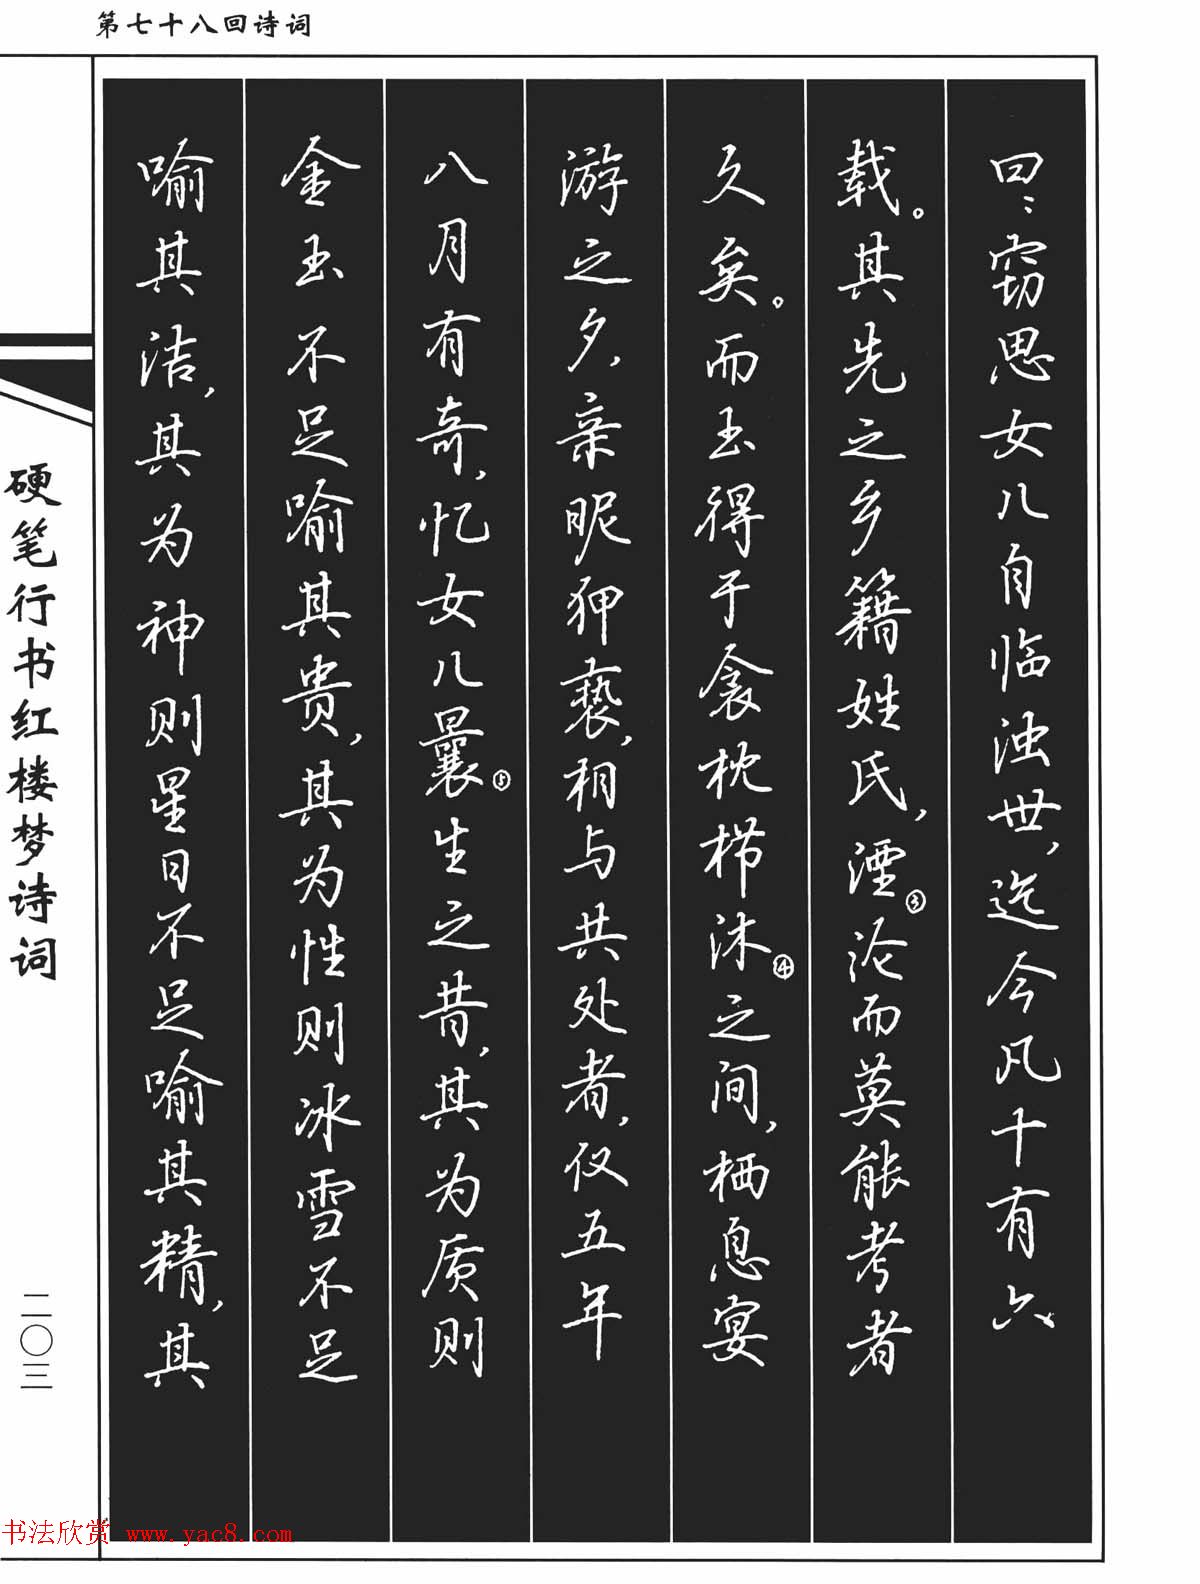 第七十八回诗词
曰:窃思女儿自临浊世,迄今凡十有六
载。其先之乡籍姓氏,湮③沦而莫能考者
久矣。而玉得于衾枕栉沐④之间,栖息宴
游之夕,亲昵狎亵,相与共处者,仅五年
八月有奇,忆女儿曩⑤生之昔,其为质则
金玉不足喻其贵,其为性则冰雪不足
喻其洁,其为神则星日不足喻其精,其
硬笔行书红楼梦诗词
二〇三
书法欣赏 www.yac8.com